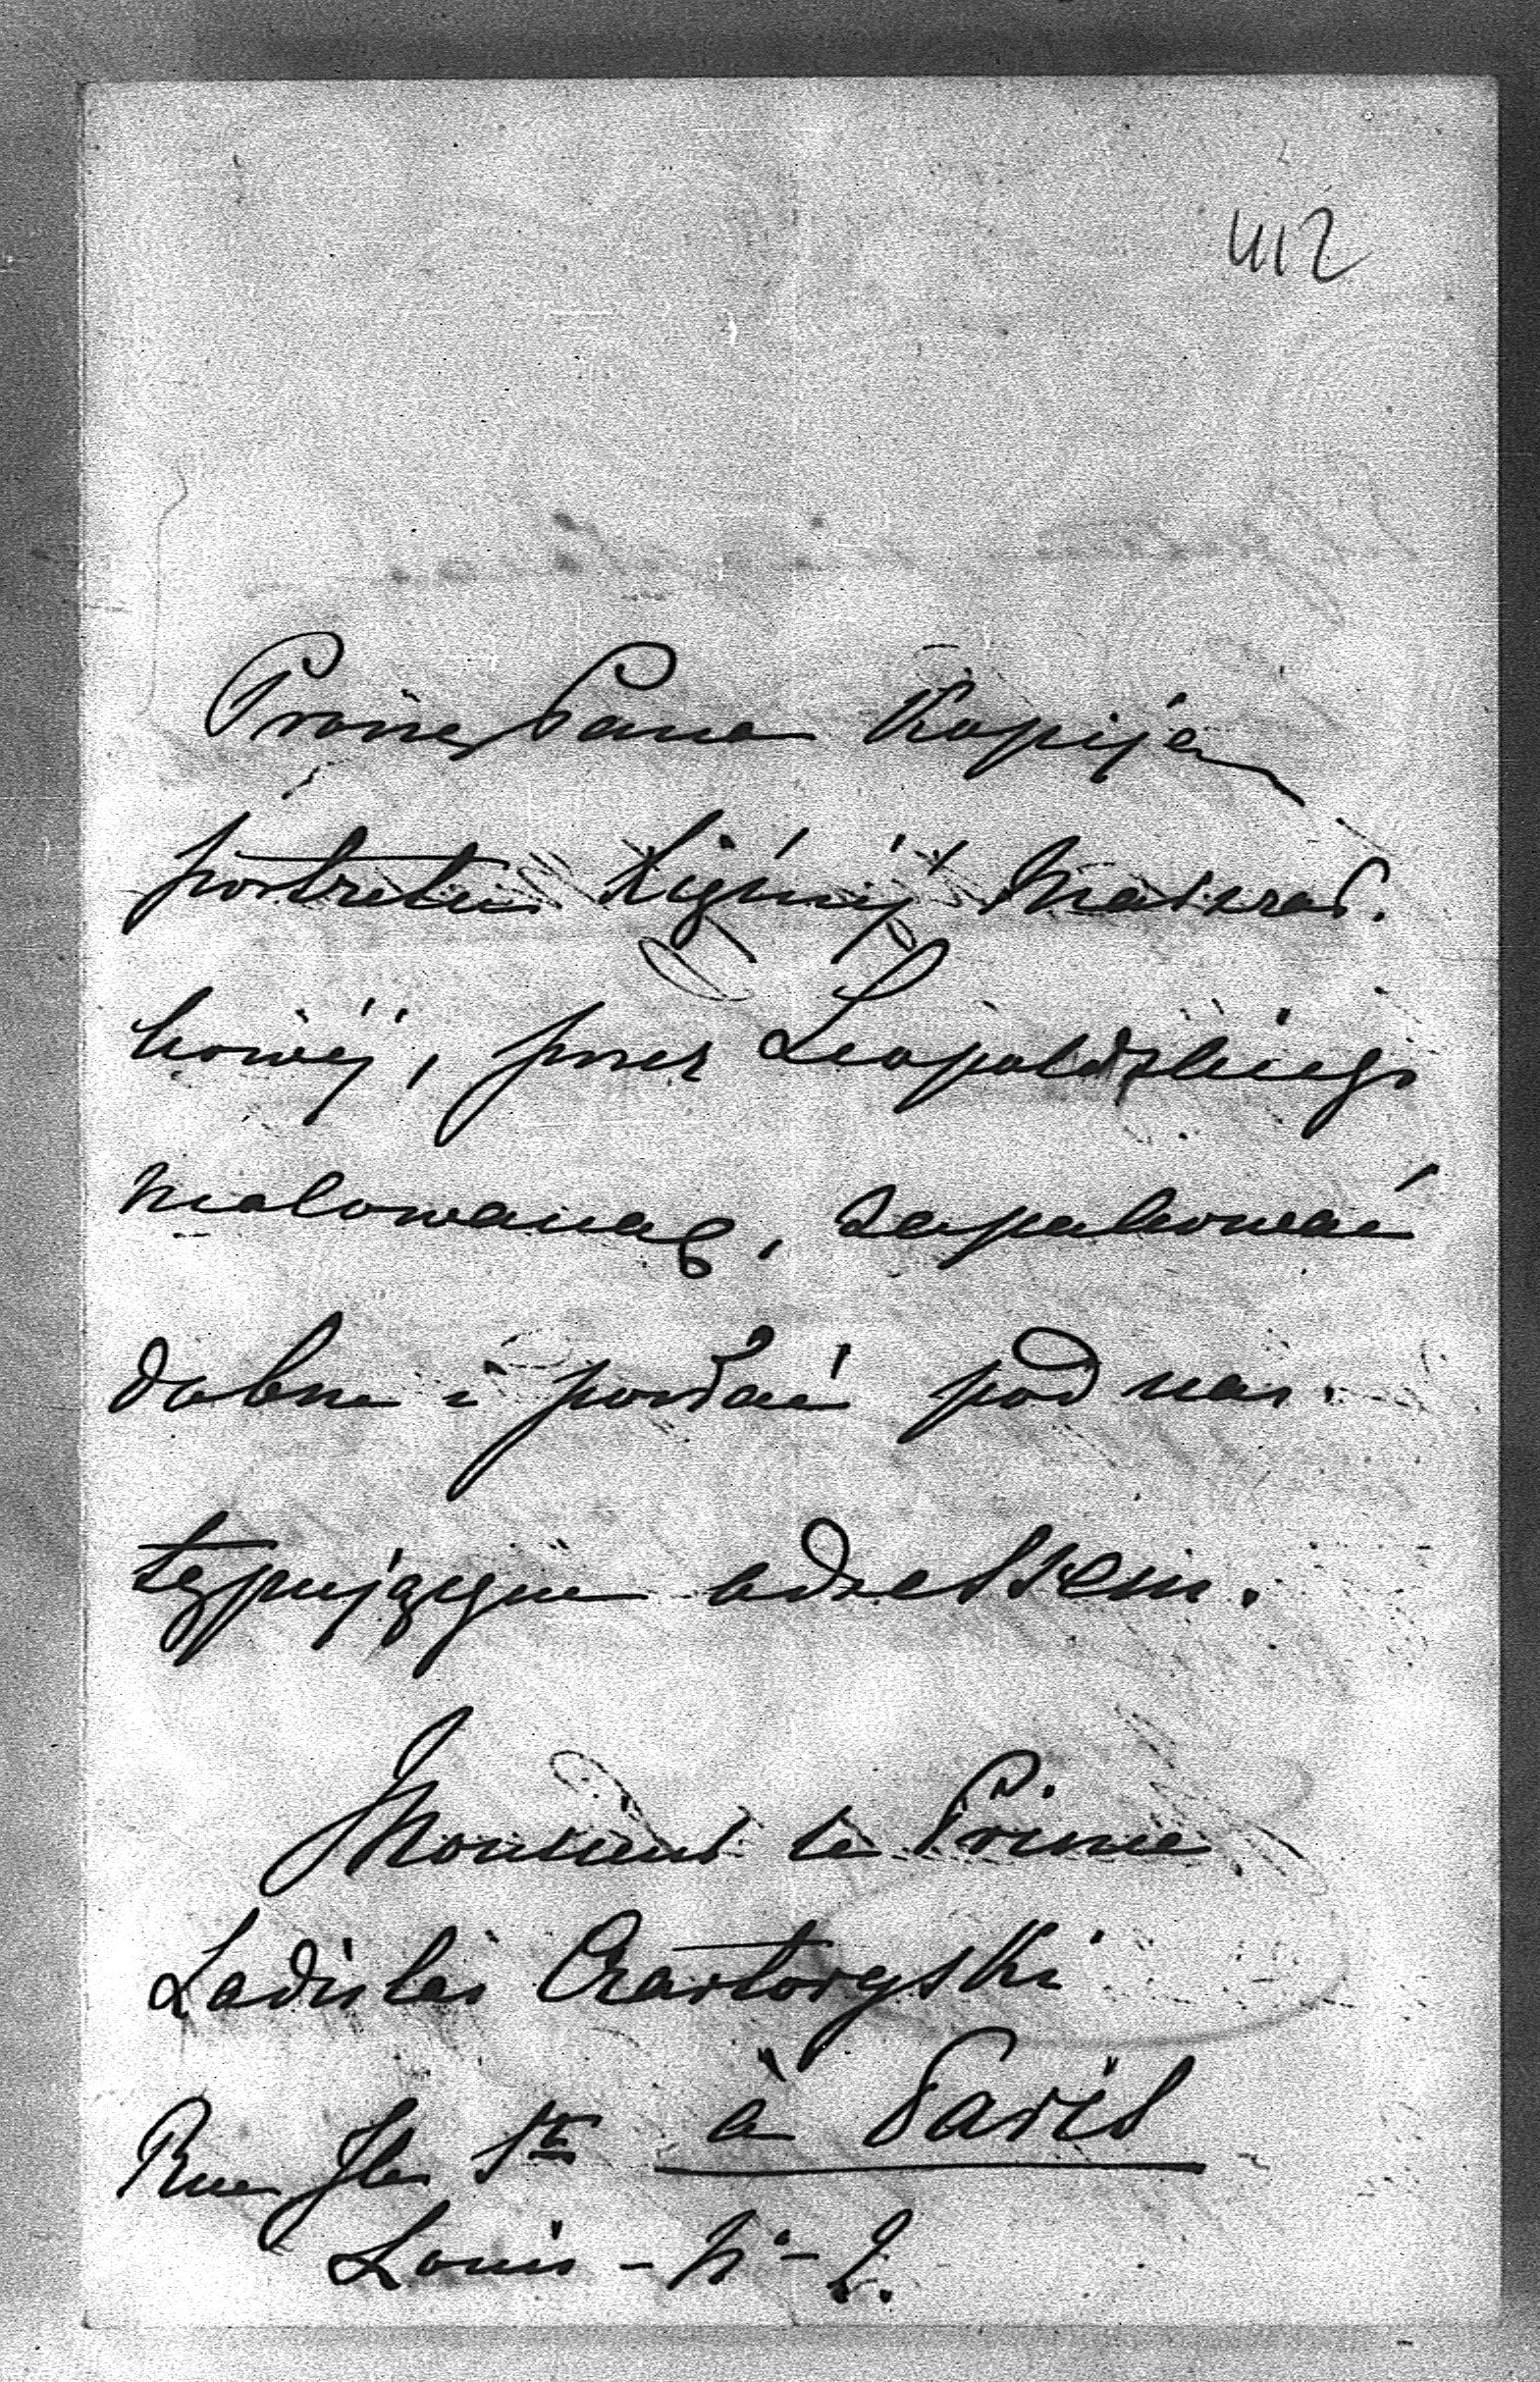 412
Proszę Pana Kopiję
portretu Xiężnéj Marszał.
kowéj, przez Leopolskiego
malowaną, zapakować
dobrze i posłać pod nas.
tępującym adressem.
Monsieur le Prince
Ladislas Czartoryski
à Paris
Rue St.
Louis - No - 2.